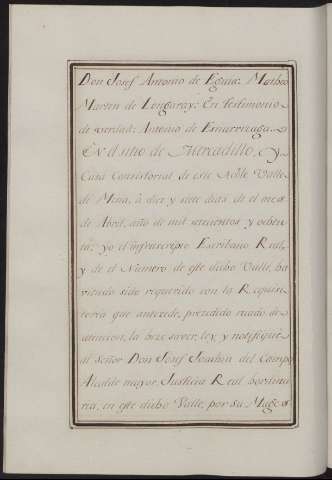 Don Josef Antonio de Eguia: Matheo
Martin de Longaray: En testimonio
de verdad: Antonio de Esnarrizaga
En el sitio de Mercadillo, y
Casa Consistorial de este Noble Valle
de Mena, à diez y siete dias de el mes
de Abril, año de mil setecientos y ochen
ta: yo el infrascripto Escribano Real,
y de el Numero de este dicho Valle, ha
viendo sido requerido con la Requisi
toria que antecede, precedido recado de
atencion, la hize saver, ley, y notifiquè
al señor Don Josef Joachin del Campo
Alcalde mayor, Justicia Real hordina
ria, en este dicho Valle, por su Mages